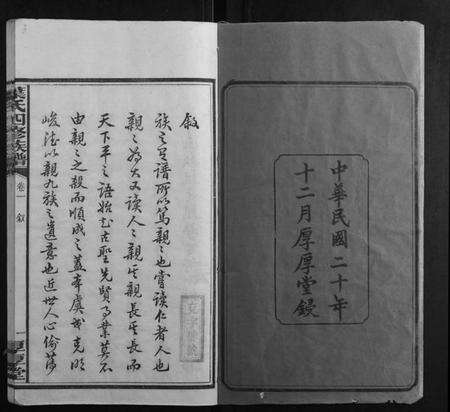 中華民國二十年
十二月厚厚堂鋟
敘
族之有譜所以篤親之也嘗讀仁者人也
親之為大又讀人之親其親長其長而
天下平之語始知古聖先賢事業莫不
由親之之殺而順成之蓋本虞書克明
峻德以親九族之遺意也近世人心偷薄
葉氏四修族譜
卷一
敘
一
厚厚堂